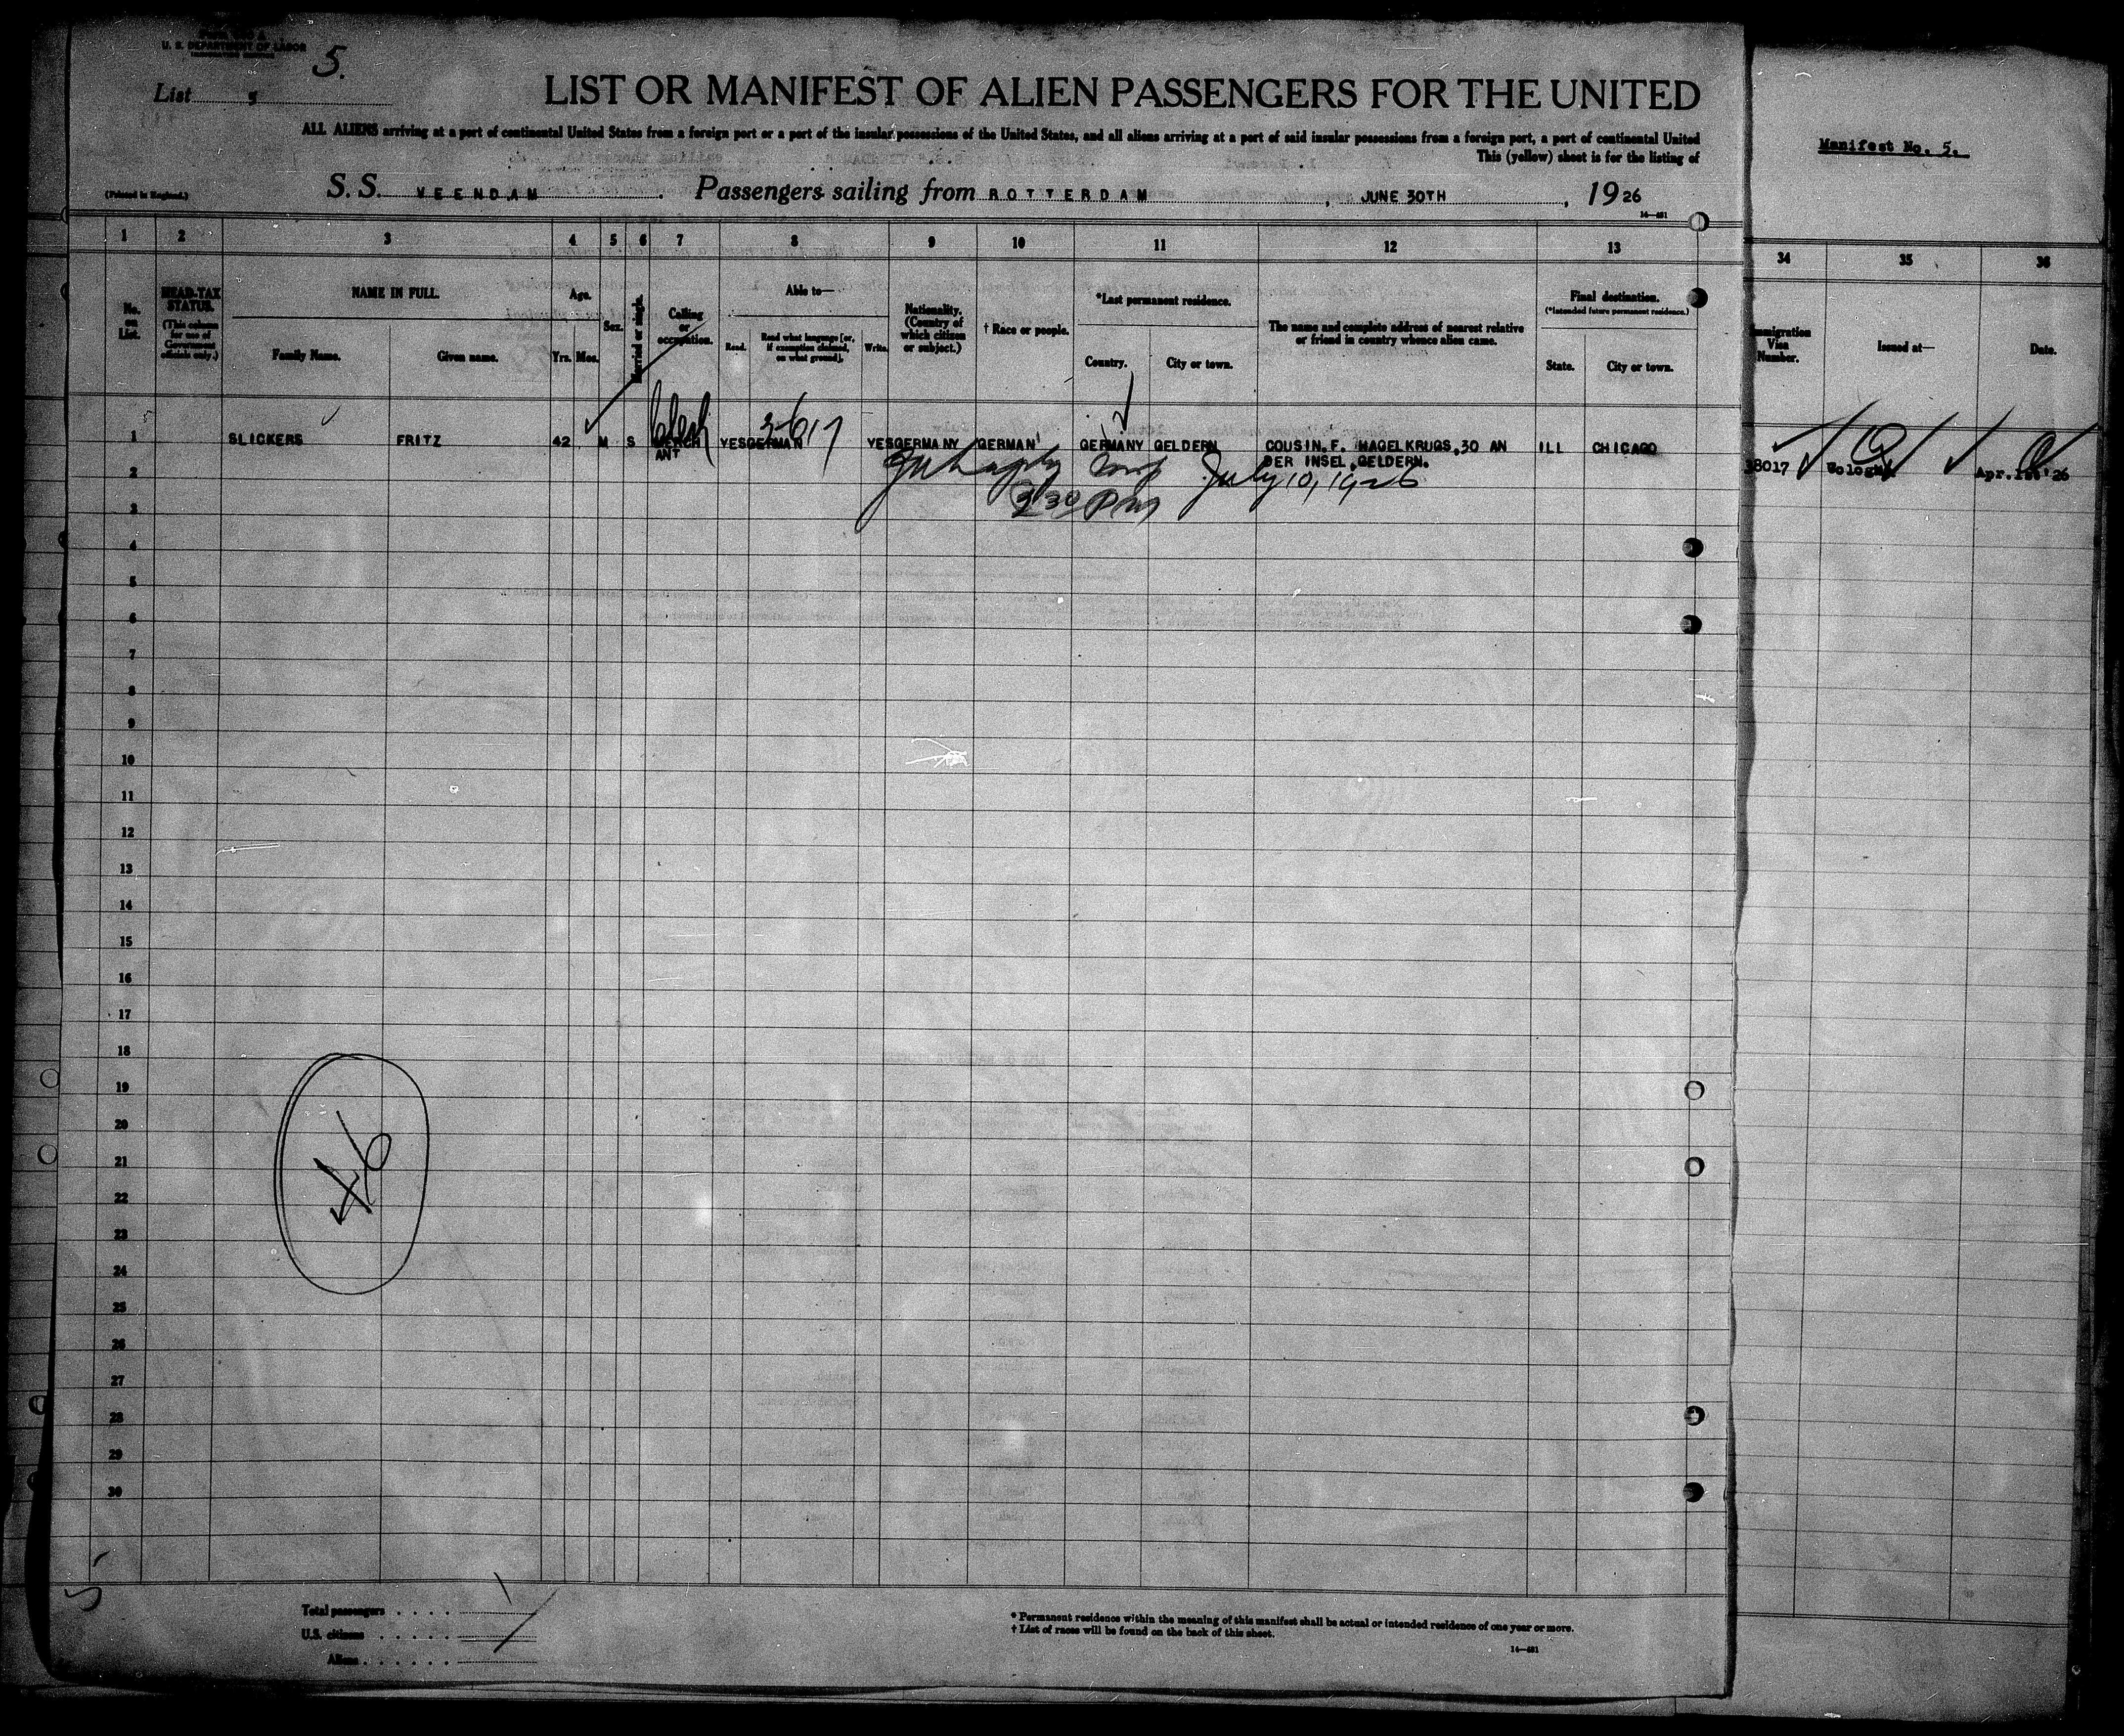 U. S. DEPARTMENT OF LABOR
5.
List 5
LIST OR MANIFEST OF ALIEN PASSENGERS FOR THE UNITED
ALL ALIENS arriving at a port of continental United States from a foreign port or a port of the insular possessions of the United States, and all aliens arriving at a port of said insular possessions from a foreign port, a port of continental United
This (yellow) sheet is for the listing of
Manifest No. 5.
(Printed in England.)
S. S. VEENDAM. Passengers sailing from ROTTERDAM, JUNE 30TH, 1926
14—481
1 2 3 4 5 6 7 8 9 10 11 12 13 34 35 36
No. on List.
HEAD-TAX STATUS.
(This column for use of Government officials only.)
NAME IN FULL.
Family Name. Given name.
Age.
Yrs. Mos.
Sex.
Married or single.
Calling or occupation.
Able to—
Read. Read what language [or, if exemption claimed, on what ground]. Write.
Nationality. (Country of which citizen or subject.)
† Race or people.
*Last permanent residence.
Country. City or town.
The name and complete address of nearest relative or friend in country whence alien came.
Final destination.
(*Intended future permanent residence.)
State. City or town.
Immigration Visa Number.
Issued at—
Date.
Clerk
1 SLICKERS FRITZ 42 M S MERCH YES GERMAN YES GERMANY GERMAN GERMANY GELDERN COUSIN, F. HAGELKRUGS, 30 AN ILL CHICAGO
ANT DER INSEL, GELDERN.
38017 Cologne Apr. 1st '26
July 10, 1926
3 30 Pm
2
3
4
5
6
7
8
9
10
11
12
13
14
15
16
17
18
19
20
21
22
23
24
25
26
27
28
29
30
Total passengers . . . .
U.S. citizens . . . . .
Aliens . . . . . .
* Permanent residence within the meaning of this manifest shall be actual or intended residence of one year or more.
† List of races will be found on the back of this sheet.
14—481